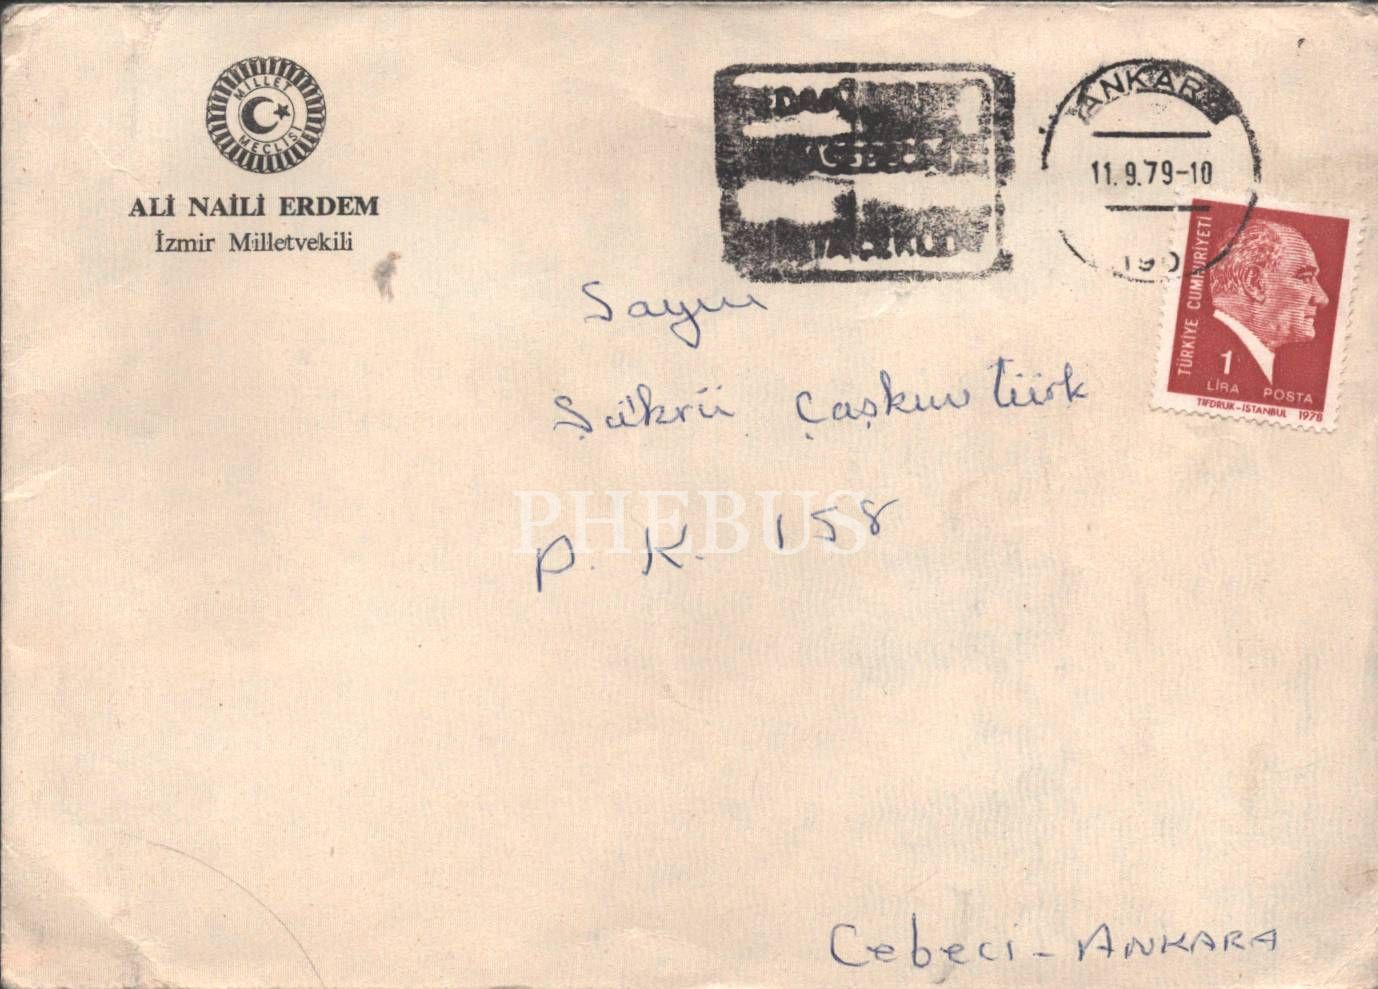 MILLET
MECLİSİ
ALİ NAİLİ ERDEM
İzmir Milletvekili
ANKARA
11.9.79-10
TÜRKİYE CUMHURİYETİ
1
LİRA POSTA
TİFDRUK-İSTANBUL 1978
Sayın
Şükrü Çaşkun Türk
P. K. 158
PHEBUS
Cebeci - ANKARA